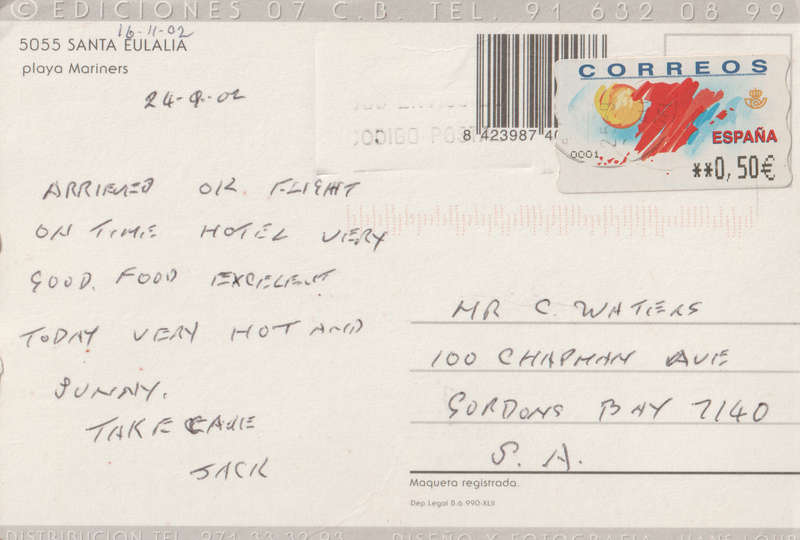 ©EDICIONES 07 C.B. TEL. 91 632 08 99
16-11-02
5055 SANTA EULALIA
playa Mariners
24-9-02
ARRIEVED OK. FLIGHT
ON TIME HOTEL VERY
GOOD. FOOD EXCELENT
TODAY VERY HOT AND
SUNNY.
TAKE CARE
JACK
CODIGO POSTAL
8 423987 40
CORREOS
ESPAÑA
0001
**0,50€
MR C. WATERS
100 CHAPMAN AVE
GORDONS BAY 7140
S. A.
Maqueta registrada.
Dep. Legal B.a. 990-XLII
DISTRIBUCION TEL. 971
DISEÑO Y FOTOGRAFIA